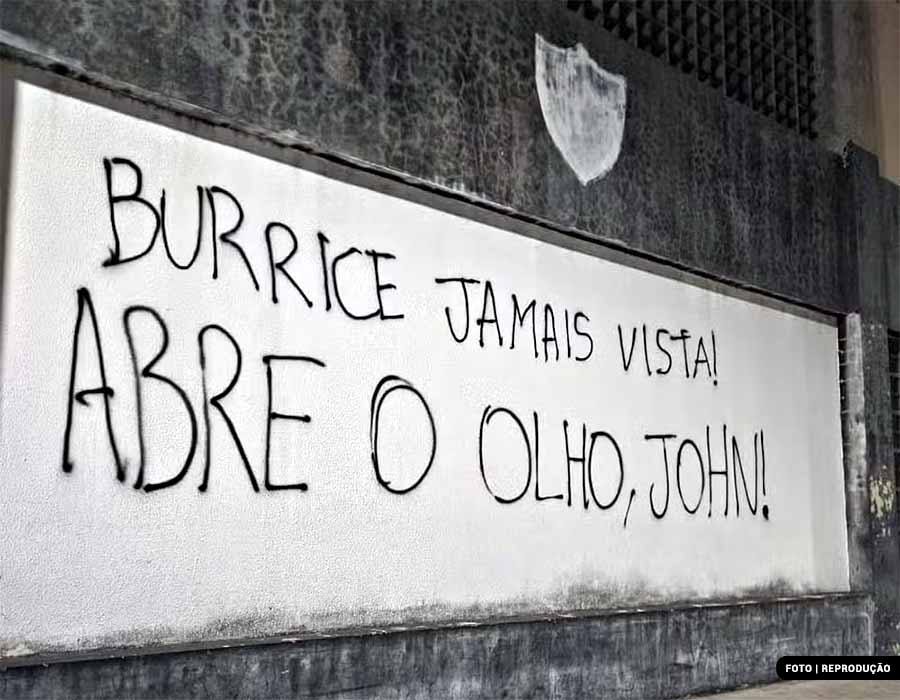 BURRICE JAMAIS VISTA!
ABRE O OLHO, JOHN!
FOTO | REPRODUÇÃO